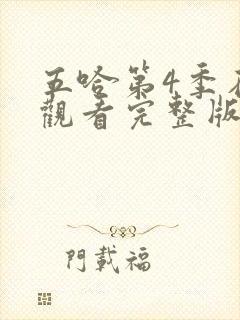 五哈第4季在
觀看完整版
門載福